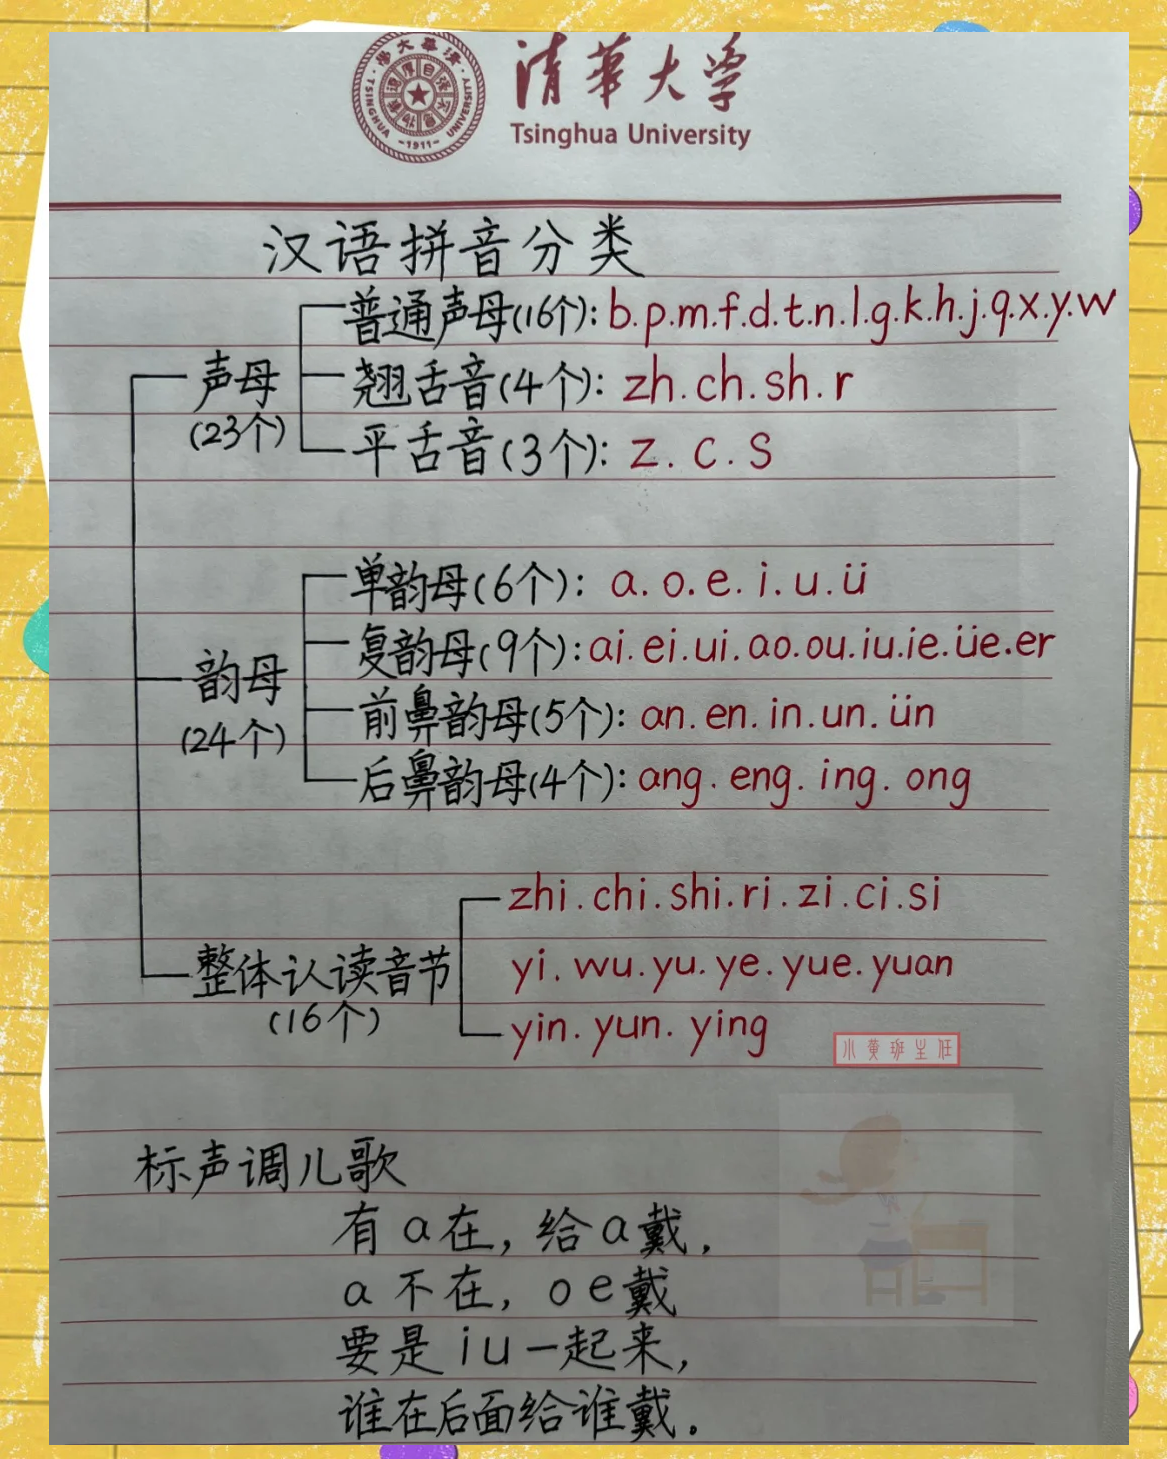 清華大学
TSINGHUA UNIVERSITY
-1911-
Tsinghua University
汉语拼音分类
声母
(23个)
普通声母(16个): b.p.m.f.d.t.n.l.g.k.h.j.q.x.y.w
翘舌音(4个): zh.ch.sh.r
平舌音(3个): z.c.s
韵母
(24个)
单韵母(6个): a.o.e.i.u.ü
复韵母(9个): ai.ei.ui.ao.ou.iu.ie.üe.er
前鼻韵母(5个): an.en.in.un.ün
后鼻韵母(4个): ang.eng.ing.ong
整体认读音节
(16个)
zhi.chi.shi.ri.zi.ci.si
yi.wu.yu.ye.yue.yuan
yin.yun.ying
小黄班主任
标声调儿歌
有a在，给a戴，
a不在，oe戴
要是iu一起来，
谁在后面给谁戴。